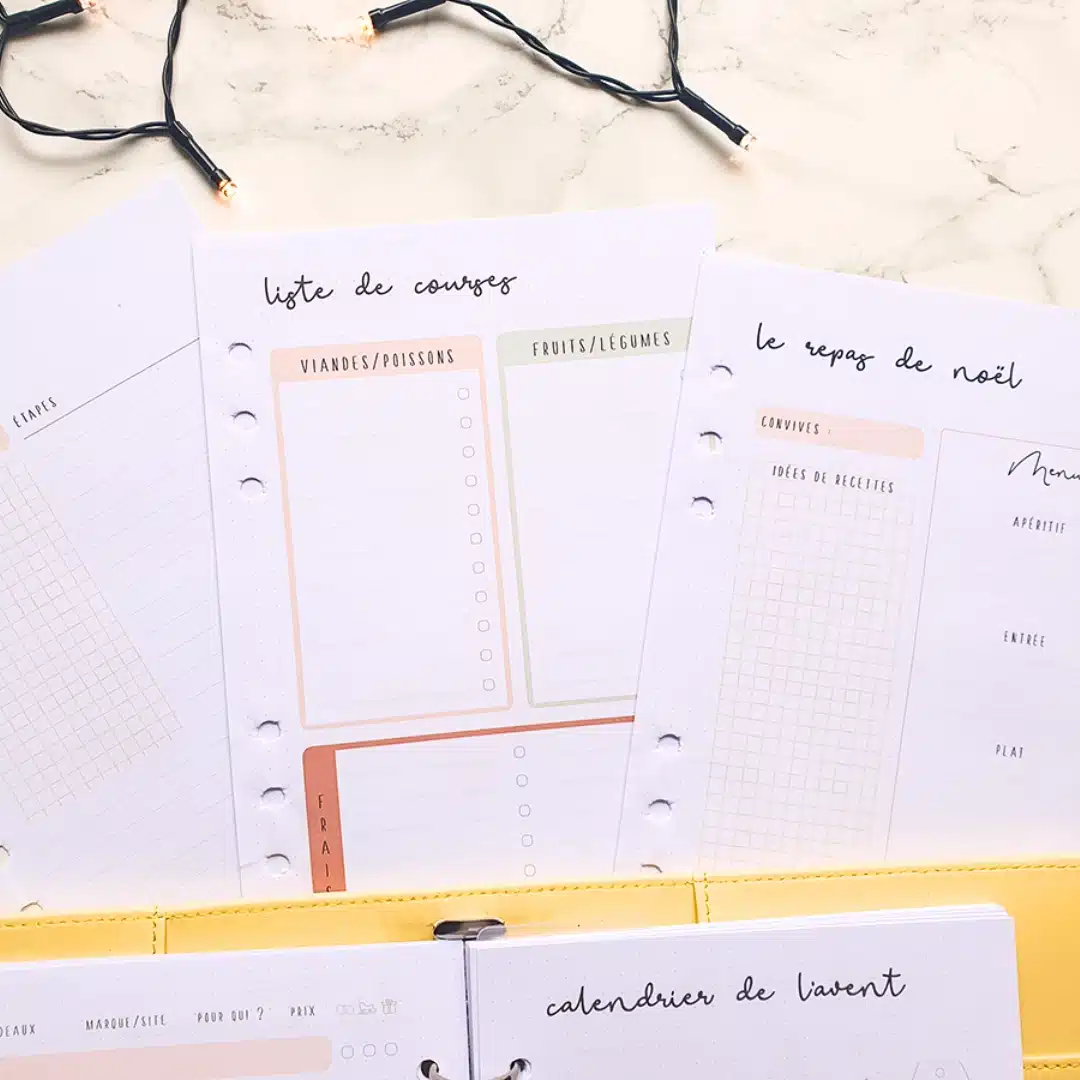 ÉTAPES
liste de courses
VIANDES/POISSONS
FRUITS/LÉGUMES
FRAIS
le repas de noël
CONVIVES :
IDÉES DE RECETTES
Menu
APÉRITIF
ENTRÉE
PLAT
MARQUE/SITE POUR QUI ? PRIX
calendrier de l'avent